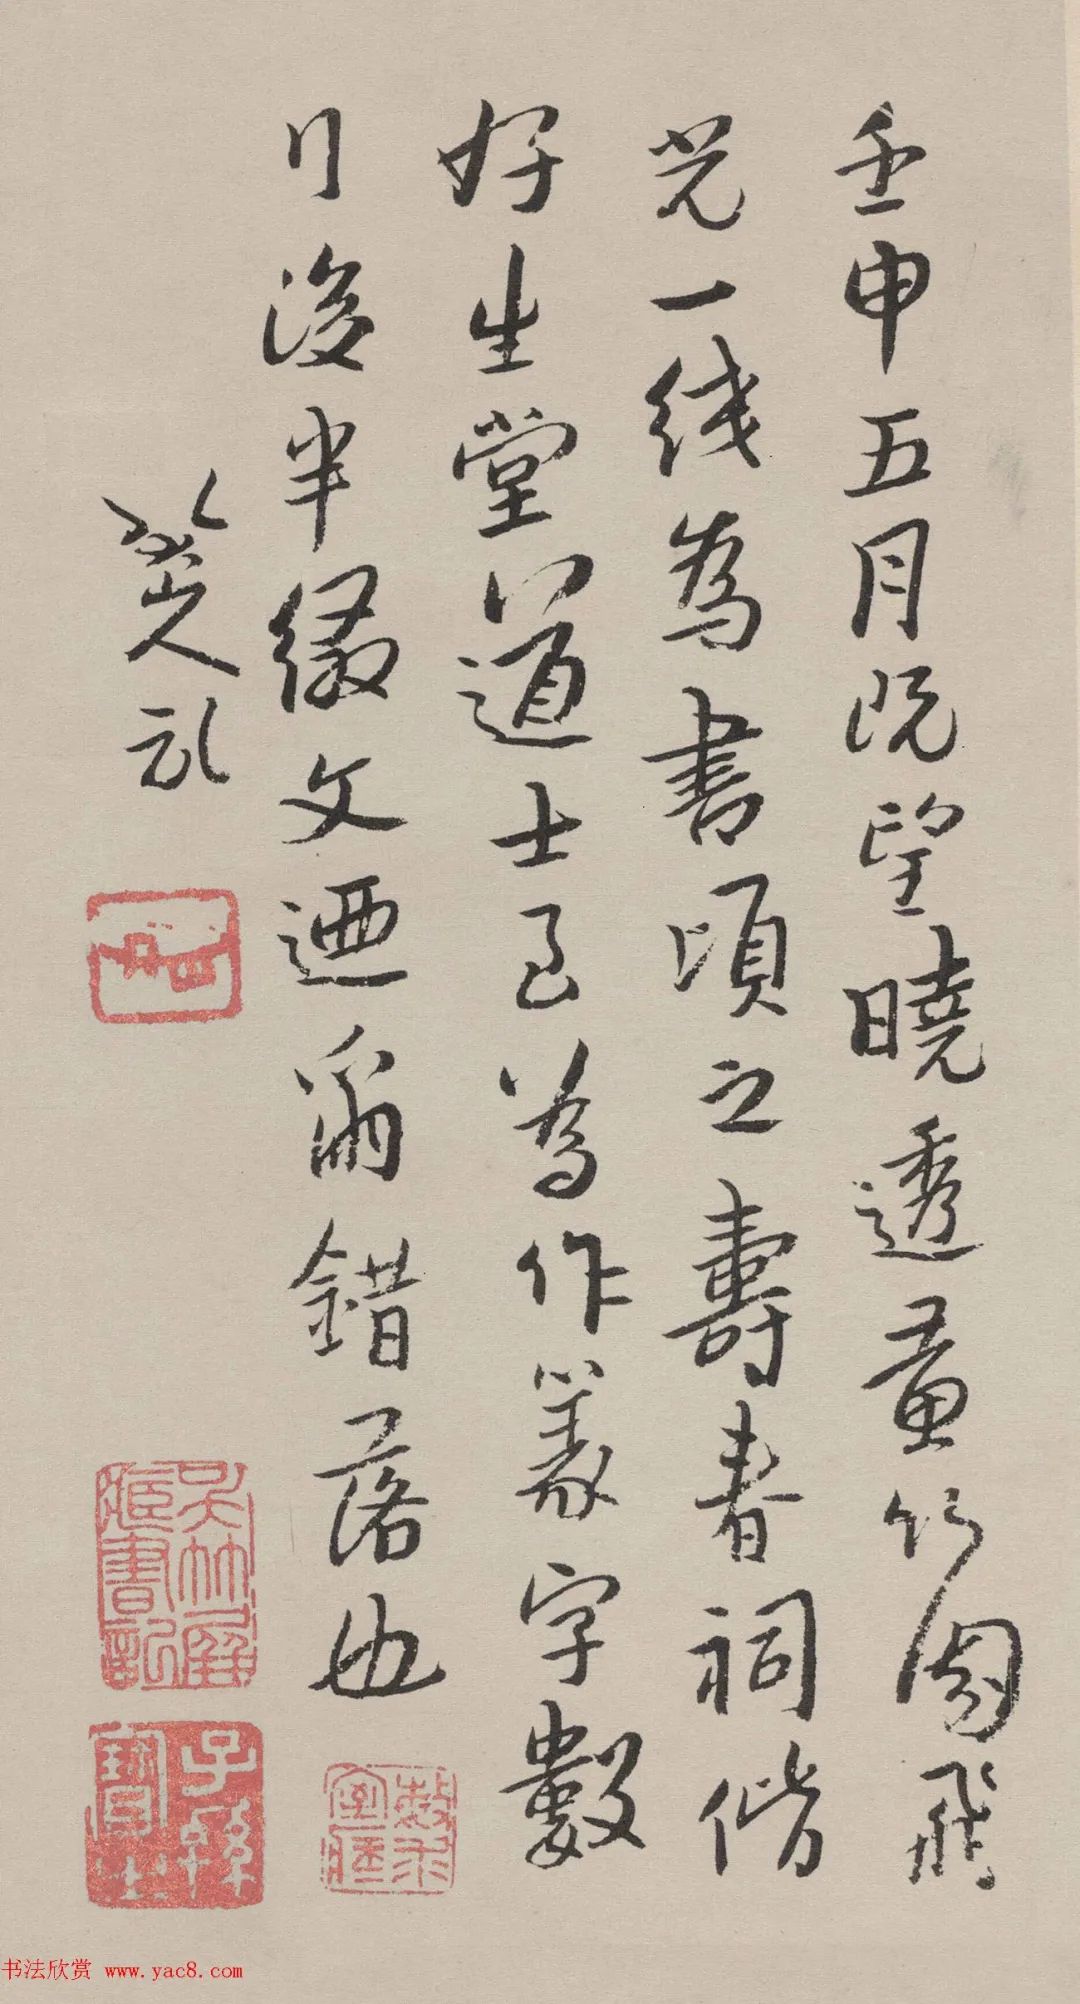 壬申五月既望曉透黃竹園飛
光一线為書頃之壽春祠偕
好生堂八道士至為作篆字數
行後半綴文迺爾錯落也
八大山人記
子孫
書法欣赏 www.yac8.com